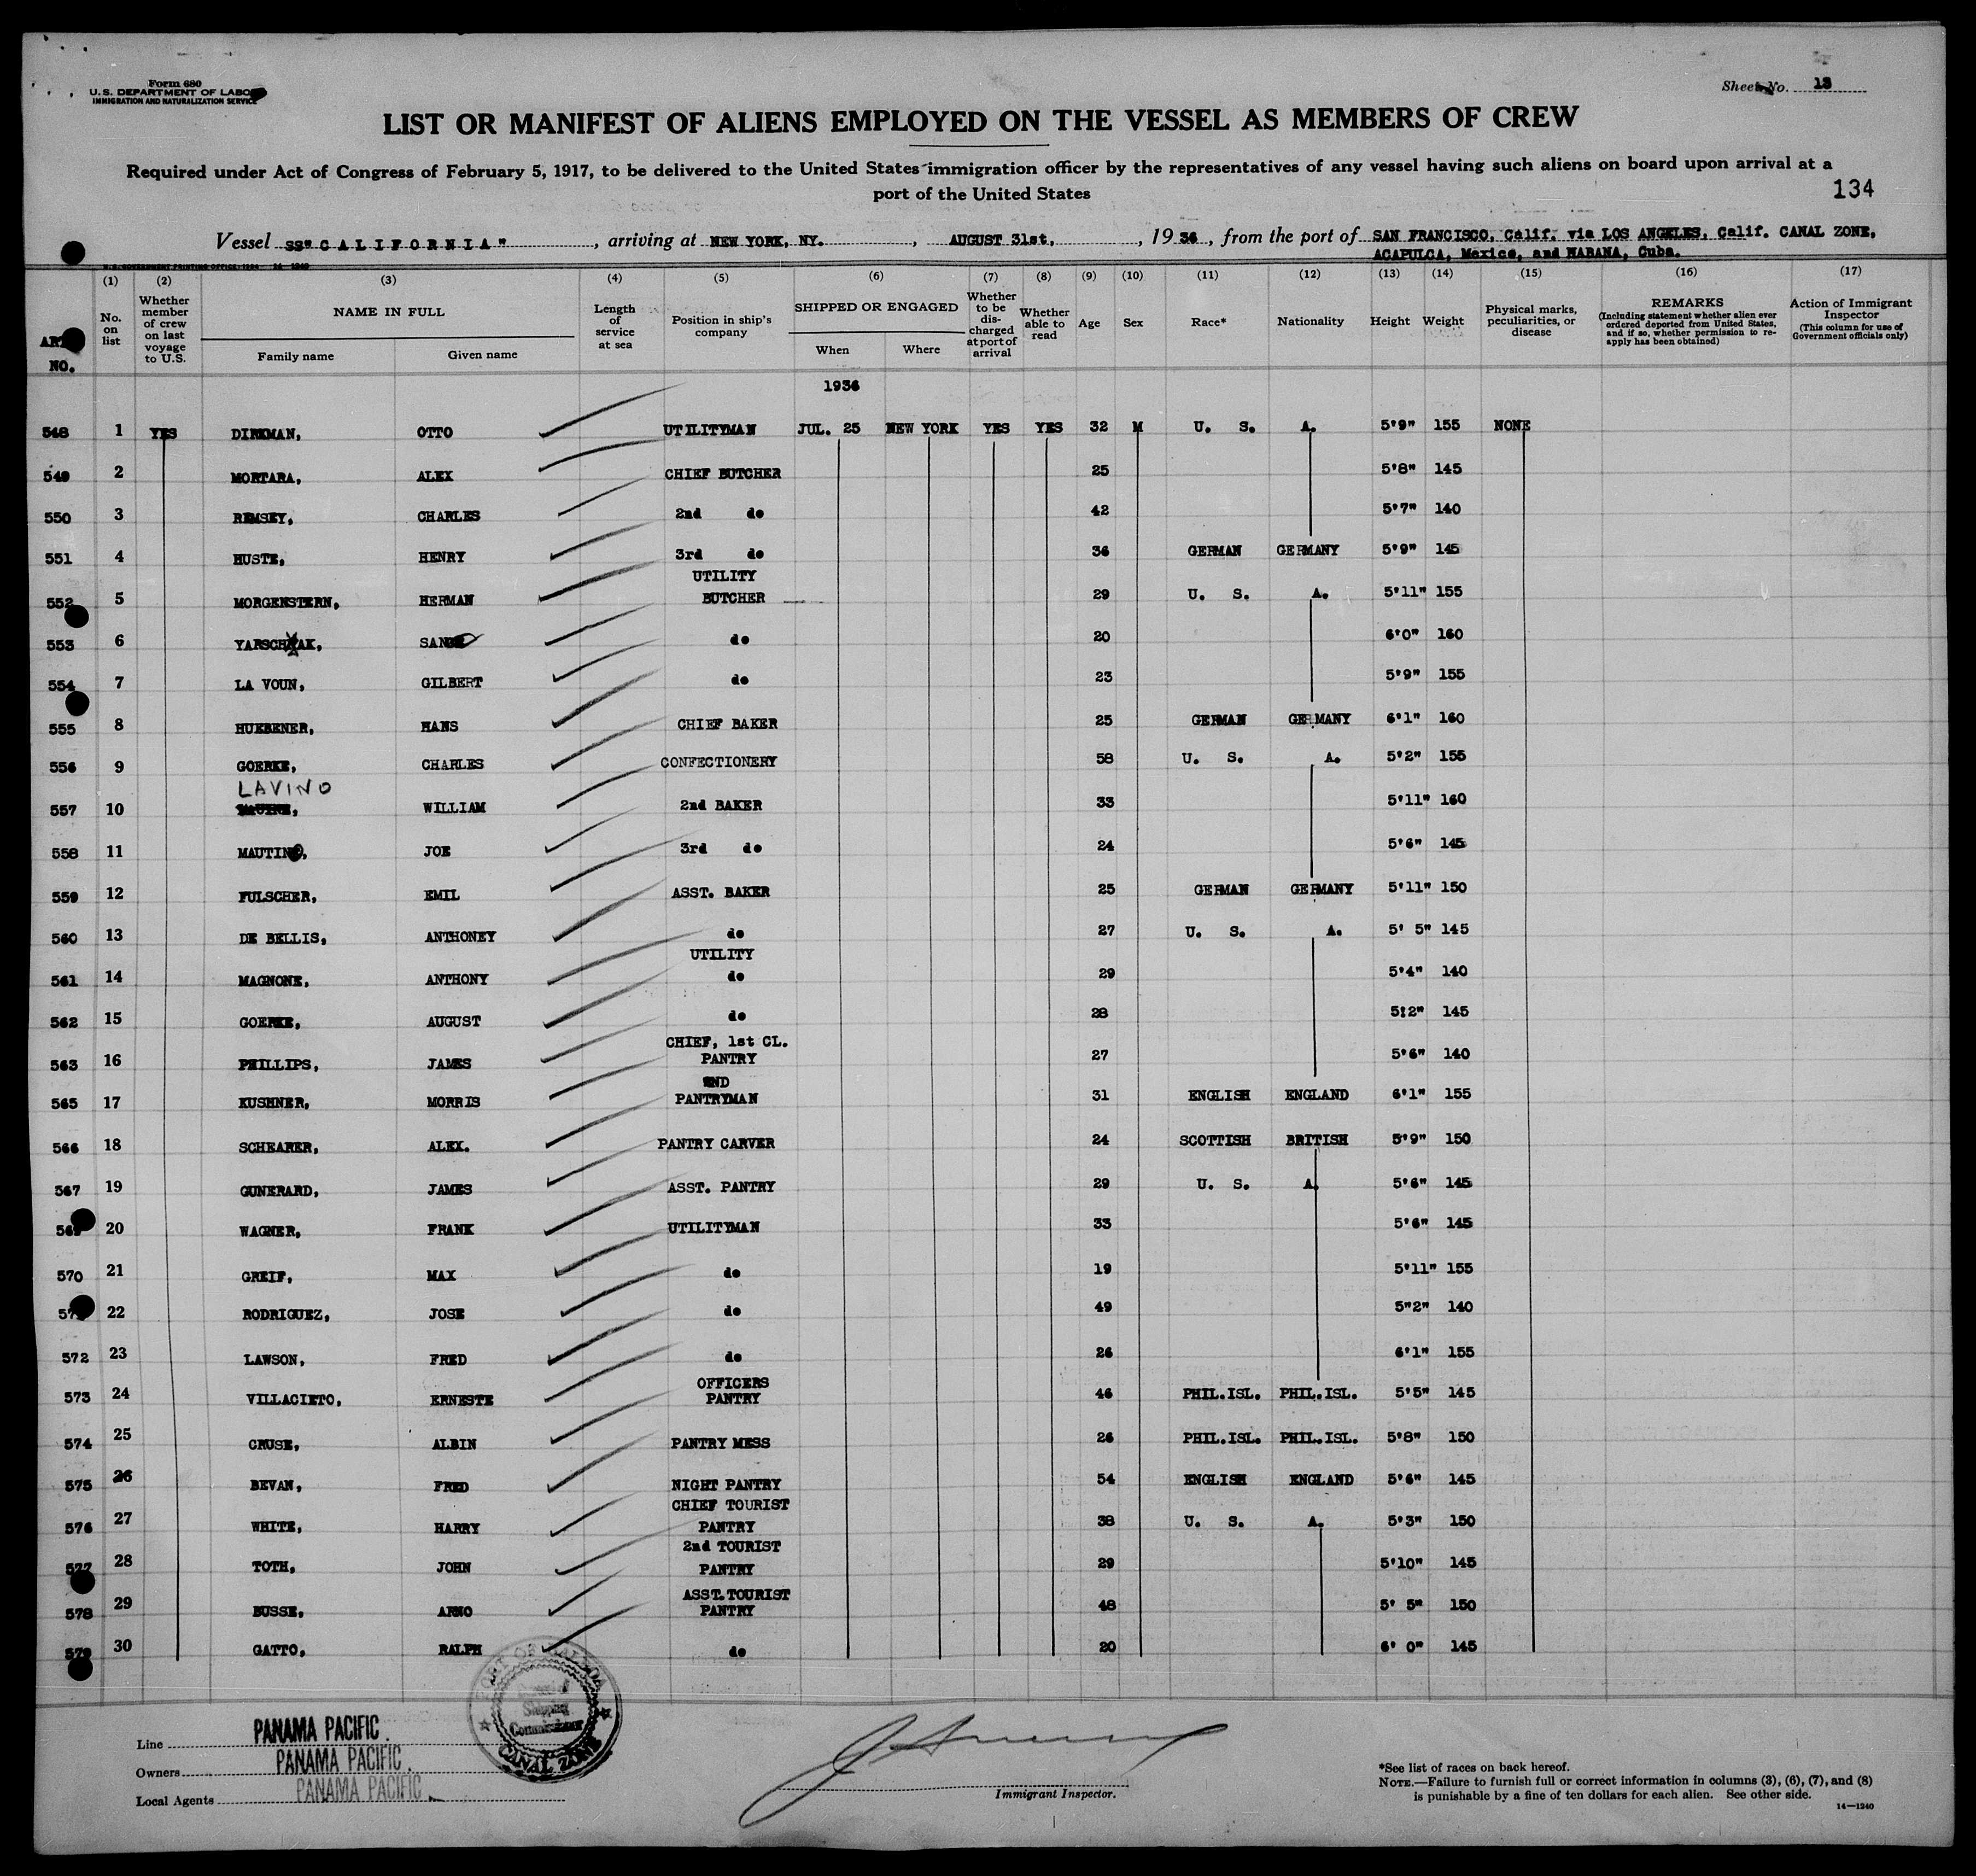 Form 680
U.S. DEPARTMENT OF LABOR
IMMIGRATION AND NATURALIZATION SERVICE
Sheet No. 13
LIST OR MANIFEST OF ALIENS EMPLOYED ON THE VESSEL AS MEMBERS OF CREW
Required under Act of Congress of February 5, 1917, to be delivered to the United States immigration officer by the representatives of any vessel having such aliens on board upon arrival at a
port of the United States
134
Vessel SS"CALIFORNIA", arriving at NEW YORK, NY., AUGUST 31st, 1936, from the port of SAN FRANCISCO, Calif. via LOS ANGELES, Calif. CANAL ZONE,
ACAPULCA, Mexico, and HABANA, Cuba.
(1) (2) (3) (4) (5) (6) (7) (8) (9) (10) (11) (12) (13) (14) (15) (16) (17)
NO.
No. on list
Whether member of crew on last voyage to U.S.
NAME IN FULL
Family name Given name
Length of service at sea
Position in ship's company
SHIPPED OR ENGAGED
When Where
Whether to be discharged at port of arrival
Whether able to read
Age
Sex
Race*
Nationality
Height
Weight
Physical marks, peculiarities, or disease
REMARKS
(Including statement whether alien ever ordered deported from United States, and if so, whether permission to reapply has been obtained)
Action of Immigrant Inspector
(This column for use of Government officials only)
1936
548 1 YES DIRKMAN, OTTO UTILITYMAN JUL. 25 NEW YORK YES YES 32 M U. S. A. 5'9" 155 NONE
549 2 MORTARA, ALEX CHIEF BUTCHER 25 5'8" 145
550 3 REMSEY, CHARLES 2nd do 42 5'7" 140
551 4 HUSTE, HENRY 3rd do 36 GERMAN GERMANY 5'9" 145
UTILITY
552 5 MORGENSTERN, HERMAN BUTCHER 29 U. S. A. 5'11" 155
553 6 do 20 6'0" 160
554 7 LA VOUN, GILBERT do 23 5'9" 155
555 8 HUEBENER, HANS CHIEF BAKER 25 GERMAN GERMANY 6'1" 160
556 9 GOERKE, CHARLES CONFECTIONERY 58 U. S. A. 5'2" 155
LAVINO
557 10 WILLIAM 2nd BAKER 33 5'11" 160
558 11 MAUTINO, JOE 3rd do 24 5'6" 145
559 12 FULSCHER, EMIL ASST. BAKER 25 GERMAN GERMANY 5'11" 150
560 13 DE BELLIS, ANTHONEY do 27 U. S. A. 5' 5" 145
UTILITY
561 14 MAGNONE, ANTHONY do 29 5'4" 140
562 15 GOERKE, AUGUST do 28 5'2" 145
CHIEF, 1st CL.
563 16 PHILLIPS, JAMES PANTRY 27 5'6" 140
565 17 KUSHNER, MORRIS PANTRYMAN 31 ENGLISH ENGLAND 6'1" 155
566 18 SCHEARER, ALEX. PANTRY CARVER 24 SCOTTISH BRITISH 5'9" 150
567 19 GUNERARD, JAMES ASST. PANTRY 29 U. S. A. 5'6" 145
20 WAGNER, FRANK UTILITYMAN 33 5'6" 145
570 21 GREIF, MAX do 19 5'11" 155
22 RODRIGUEZ, JOSE do 49 5"2" 140
572 23 LAWSON, FRED do 26 6'1" 155
OFFICERS
573 24 VILLACIETO, ERNESTE PANTRY 46 PHIL.ISL. PHIL.ISL. 5'5" 145
574 25 CRUSE, ALBIN PANTRY MESS 26 PHIL.ISL. PHIL.ISL. 5'8" 150
575 26 BEVAN, FRED NIGHT PANTRY 54 ENGLISH ENGLAND 5'6" 145
CHIEF TOURIST
576 27 WHITE, HARRY PANTRY 38 U. S. A. 5'3" 150
2nd TOURIST
577 28 TOTH, JOHN PANTRY 29 5'10" 145
ASST.TOURIST
578 29 BUSSE, ARNO PANTRY 48 5' 5" 150
579 30 GATTO, RALPH do 20 6' 0" 145
PORT OF BALBOA
Shipping
Commissioner
CANAL ZONE
Line PANAMA PACIFIC
Owners PANAMA PACIFIC
Local Agents PANAMA PACIFIC
Immigrant Inspector.
*See list of races on back hereof.
NOTE.—Failure to furnish full or correct information in columns (3), (6), (7), and (8)
is punishable by a fine of ten dollars for each alien. See other side.
14—1240